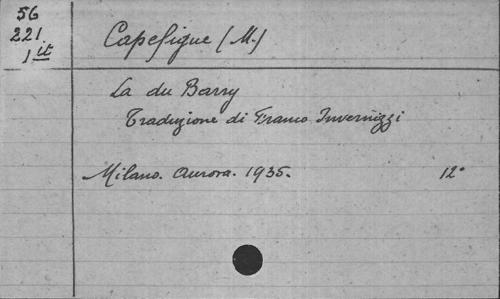 56
221.
1 it
Capefigue (M.)
La du Barry
Traduzione di Franco Invernizzi
Milano. Aurora. 1935. 12°